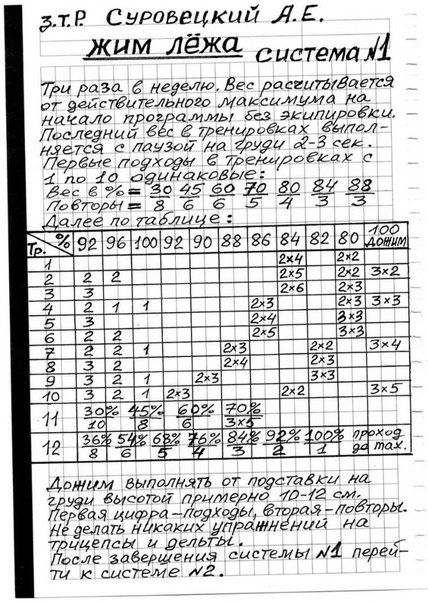 З.Т.Р. СУРОВЕЦКИЙ А.Е.
ЖИМ ЛЁЖА СИСТЕМА №1
Три раза в неделю. Вес расчитывается
от действительного максимума на
начало программы без экипировки.
Последний вес в тренировках выпол-
няется с паузой на груди 2-3 сек.
Первые подходы в тренировках с
1 по 10 одинаковые:
Вес в % = 30 45 60 70 80 84 88
Повторы = 8 6 6 5 4 3 3
Далее по таблице:
Тр. % 92 96 100 92 90 88 86 84 82 80 100 ДОЖИМ
1 2×4 2×2
2 2 2 2×5 2×2 3×2
3 3 2×6 2×3
4 2 1 1 2×3 2×3 3×3
5 3 2×4 3×3
6 2 2 2×5 3×3
7 2 2 1 2×3 2×2 3×4
8 3 2 2×4 2×3
9 3 2 1 2×3 3×3
10 3 2 1 2×3 2×2 3×5
11 30% 45% 60% 70%
10 8 6 3×5
12 36% 54% 68% 76% 84% 92% 100% проход
8 6 5 4 3 2 1 до тах.
Дожим выполнять от подставки на
груди высотой примерно 10-12 см.
Первая цифра-подходы, вторая-повторы.
Не делать никаких упражнений на
трицепсы и дельты.
После завершения системы №1 перей-
ти к системе №2.